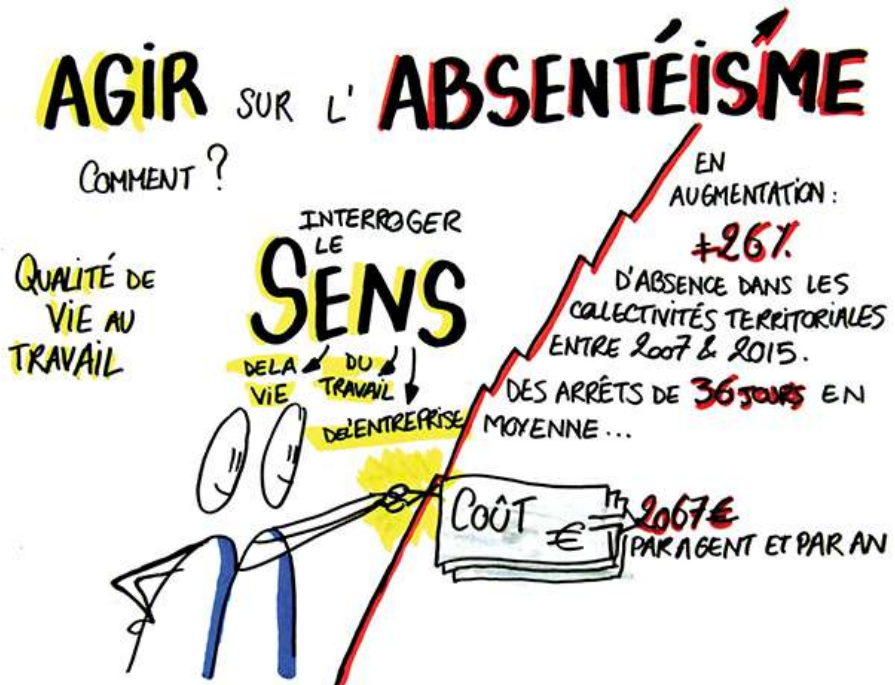 AGIR SUR L' ABSENTÉISME
COMMENT ?
QUALITÉ DE
VIE AU
TRAVAIL
INTERROGER
LE
SENS
DE LA
VIE
DU
TRAVAIL
DE L'ENTREPRISE
EN
AUGMENTATION :
+26%
D'ABSENCE DANS LES
COLLECTIVITÉS TERRITORIALES
ENTRE 2007 & 2015.
DES ARRÊTS DE 36 JOURS EN
MOYENNE ...
COÛT
€
2067€
PAR AGENT ET PAR AN